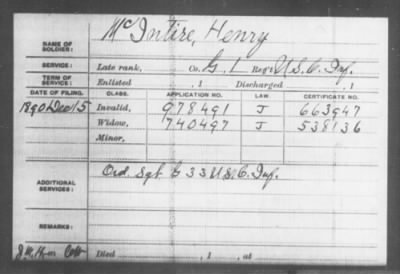 McIntire, Henry
NAME OF SOLDIER:
SERVICE: Late rank, Co. G, 1 Reg't U.S.C. Inf.
TERM OF SERVICE: Enlisted , 1 Discharged , 1
DATE OF FILING. CLASS. APPLICATION NO. LAW. CERTIFICATE NO.
1890 Dec 15 Invalid, 978491 J 663947
Widow, 740497 J 538136
Minor,
ADDITIONAL SERVICES: Ord. Sgt G 33 U.S.C. Inf.
REMARKS:
Died , 1 , at